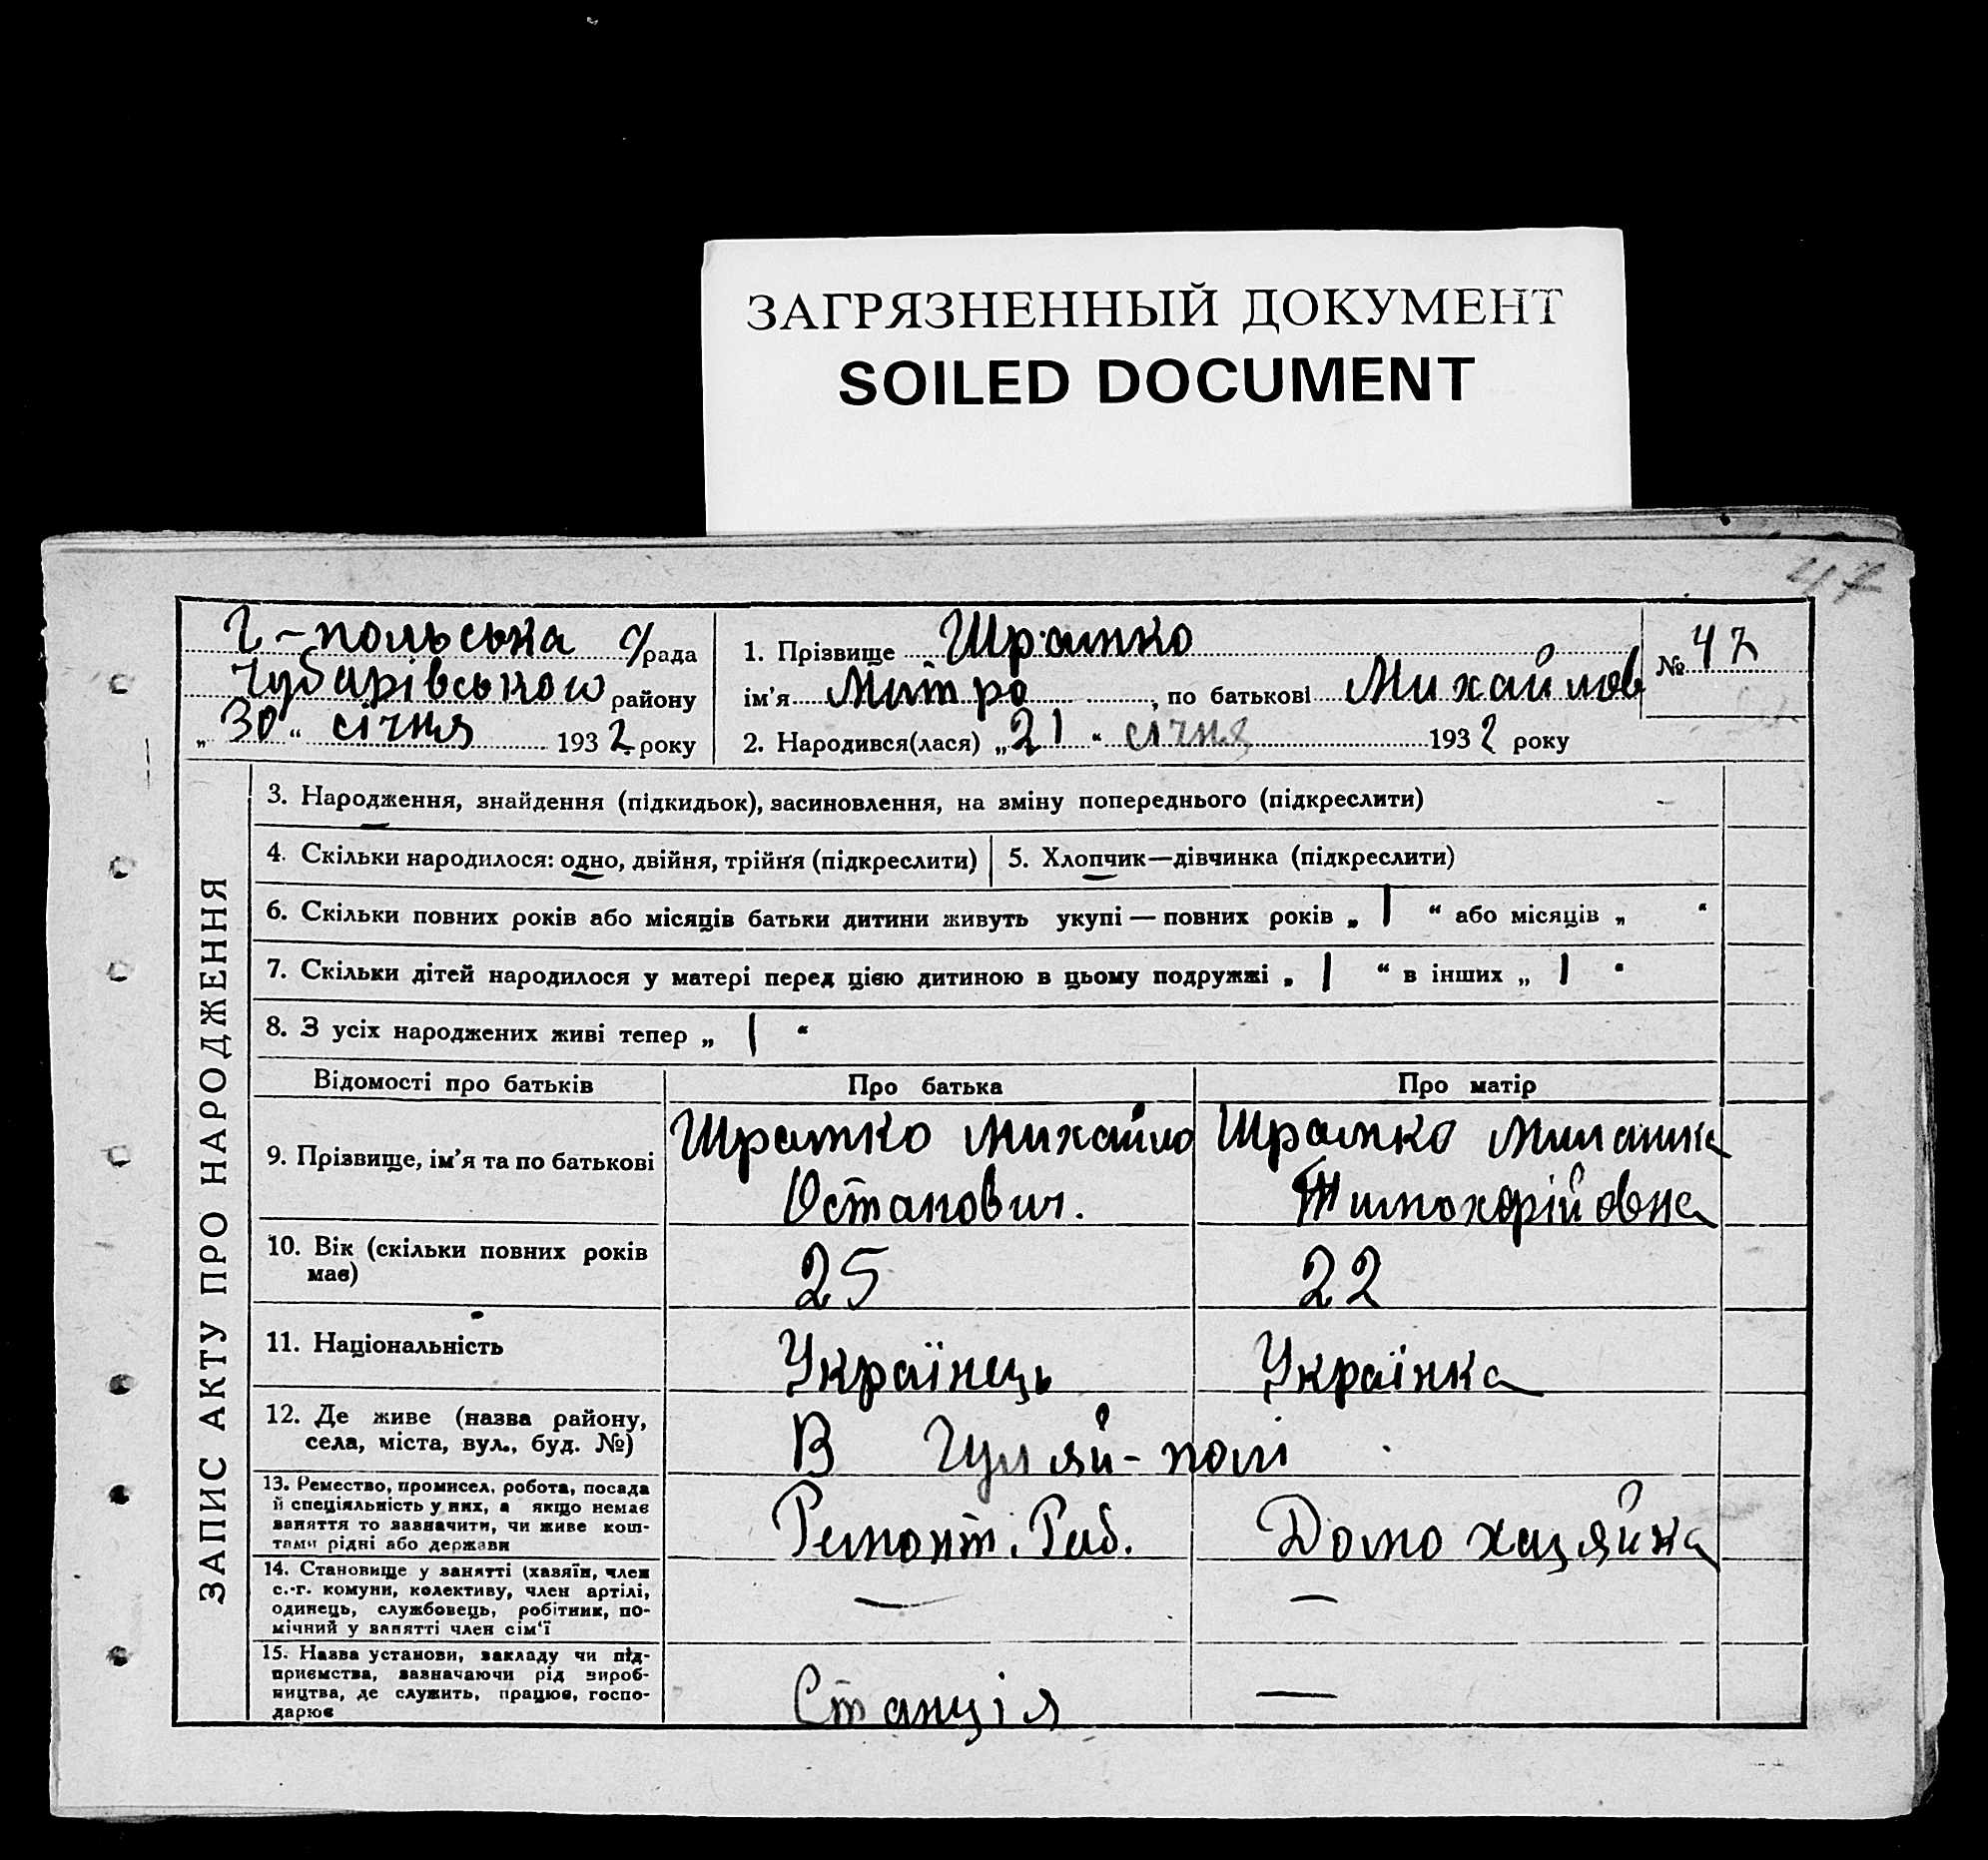 ЗАГРЯЗНЕННЫЙ ДОКУМЕНТ
SOILED DOCUMENT
47
Г-польська с/рада
Чубарівського району
„30“ січня 1932 року
1. Прізвище Шрамко
ім'я Митро, по батькові Михайлов
№ 47
2. Народився(лася) „21“ січня 1932 року
ЗАПИС АКТУ ПРО НАРОДЖЕННЯ
3. Народження, знайдення (підкидьок), засиновлення, на зміну попереднього (підкреслити)
4. Скільки народилося: одно, двійня, трійня (підкреслити)
5. Хлопчик—дівчинка (підкреслити)
6. Скільки повних років або місяців батьки дитини живуть укупі — повних років „1“ або місяців „ “
7. Скільки дітей народилося у матері перед цією дитиною в цьому подружжі „1“ в інших „1“
8. З усіх народжених живі тепер „1“
Відомості про батьків
Про батька
Про матір
9. Прізвище, ім'я та по батькові
Шрамко Михайло
Остапович.
Шрамко Миланка
10. Вік (скільки повних років
має)
25
22
11. Національність
Українець
Українка
12. Де живе (назва району,
села, міста, вул., буд. №)
В Гуляй-полі
13. Ремество, промисел, робота, посада
й спеціяльність у них, а якщо немає
заняття то зазначити, чи живе кош-
тами рідні або держави
Ремонт. Раб.
Домохазяйка
14. Становище у занятті (хазяїн, член
с.-г. комуни, колективу, член артілі,
одинець, службовець, робітник, по-
мічний у занятті член сім'ї
—
—
15. Назва установи, закладу чи під-
приємства, зазначаючи рід вироб-
ництва, де служить, працює, госпо-
дарює
Станція
—